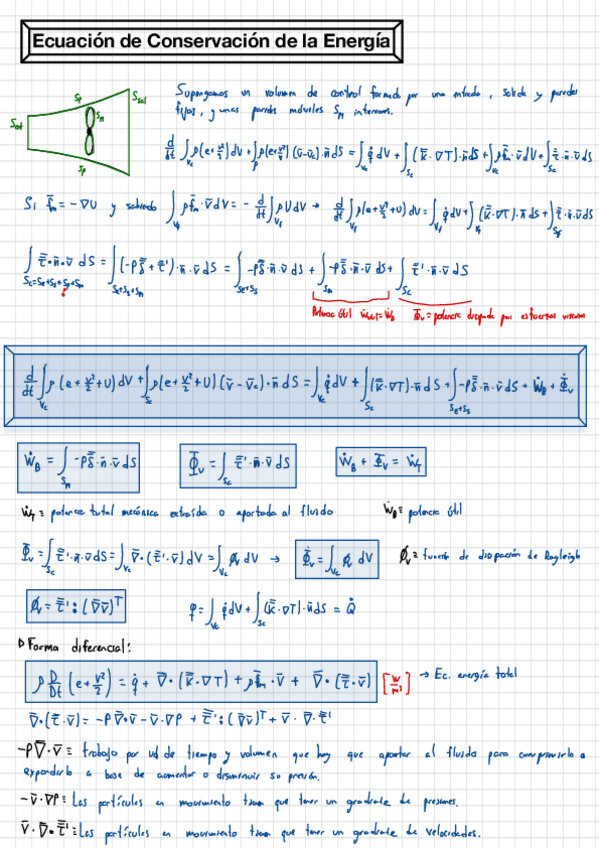 Ecuación de Conservación de la Energía
Supongamos un volumen de control formado por una entrada, salida y paredes
fijas, y unas paredes móviles Sₘ internas.
S_f S_m S_sal
S_ent
S_f
d/dt ∫_Vc ρ(e+v²/2)dV + ∫ ρ(e+v²/2)(v̄-v̄c)·n̄ dS = ∫_Vc q̇ dV + ∫_Sc (K̿·∇T)·n̄ dS + ∫ ρf̄m·v̄ dV + ∫_Sc τ̿·n̄·v̄ dS
Si f̄m = -∇U y sabiendo ∫ ρf̄m·v̄ dV = - d/dt ∫ ρU dV → d/dt ∫ ρ(e+v²/2+U)dV = ∫ q̇ dV + ∫ (K̿·∇T)·n̄ dS + ∫ τ̿·n̄·v̄ dS
∫ τ̿·n̄·v̄ dS = ∫ (-pδ̿+τ̿')·n̄·v̄ dS = ∫ -pδ̿·n̄·v̄ dS + ∫ -pδ̿·n̄·v̄ dS + ∫_Sc τ̿'·n̄·v̄ dS
Potencia útil Φ̇v = potencia disipada por esfuerzos viscosos
d/dt ∫_Vc ρ(e+v²/2+U)dV + ∫_Sc ρ(e+v²/2+U)(v̄-v̄c)·n̄ dS = ∫_Vc q̇ dV + ∫_Sc (K̿·∇T)·n̄ dS + ∫ -pδ̿·n̄·v̄ dS + Ẇ_B + Φ̇v
Ẇ_B = ∫_Sm -pδ̿·n̄·v̄ dS Φ̇v = ∫_Sc τ̿'·n̄·v̄ dS Ẇ_B + Φ̇v = Ẇ_T
Ẇ_T ≡ potencia total mecánica extraída o aportada al fluido Ẇ_B ≡ potencia útil
Φ̇v = ∫_Sc τ̿'·n̄·v̄ dS = ∫_Vc ∇̄·(τ̿'·v̄) dV = ∫_Vc ϕv dV → Φ̇v = ∫_Vc ϕv dV ϕv ≡ función de disipación de Rayleigh
ϕv = τ̿' : (∇̄v̄)ᵀ φ = ∫_Vc q̇ dV + ∫_Sc (K̿·∇T)·n̄ dS = Q̇
Forma diferencial:
ρ D/Dt (e+v²/2) = q̇ + ∇̄·(K̿·∇T) + ρf̄m·v̄ + ∇̄·(τ̿·v̄) [W/m³] → Ec. energía total
∇̄·(τ̿·v̄) = -p∇̄·v̄ - v̄·∇p + τ̿' : (∇̄v̄)ᵀ + v̄·∇̄·τ̿'
-p∇̄·v̄ ≡ trabajo por ud de tiempo y volumen que hay que aportar al fluido para comprimirlo o
expandirlo a base de aumentar o disminuir su presión.
-v̄·∇p ≡ Las partículas en movimiento tienen que tener un gradiente de presiones.
v̄·∇̄·τ̿' ≡ Las partículas en movimiento tienen que tener un gradiente de velocidades.